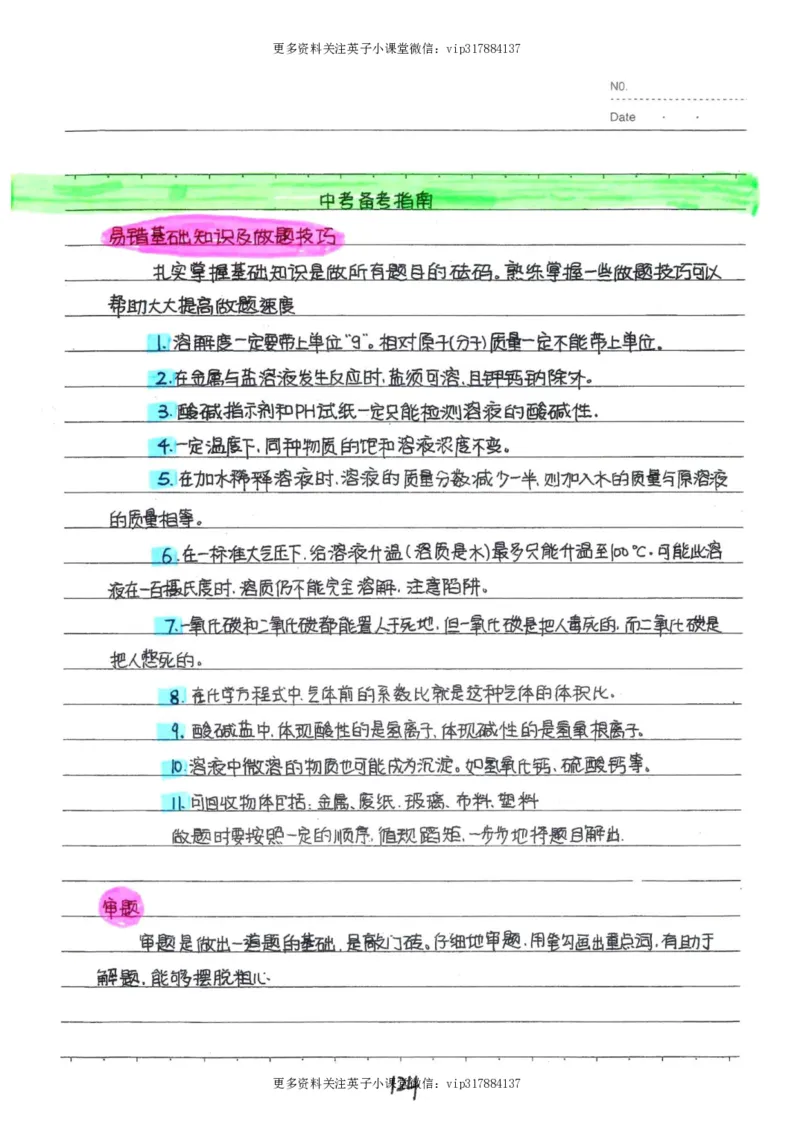 更多资料关注英子小课堂微信：vip317884137
NO.
Date
中考备考指南
易错基础知识及做题技巧
扎实掌握基础知识是做所有题目的砝码。熟练掌握一些做题技巧可以
帮助大大提高做题速度
1.溶解度一定要带上单位"g"。相对原子(分子)质量一定不能带上单位。
2.在金属与盐溶液发生反应时,盐须可溶,且钾钙钠除外。
3.酸碱指示剂和PH试纸一定只能检测溶液的酸碱性.
4.一定温度下,同种物质的饱和溶液浓度不变。
5.在加水稀释溶液时,溶液的质量分数减少一半,则加入水的质量与原溶液
的质量相等。
6.在一标准大气压下,给溶液升温(溶质是水)最多只能升温至100℃.可能此溶
液在一百摄氏度时,溶质仍不能完全溶解,注意陷阱。
7.一氧化碳和二氧化碳都能置人于死地,但一氧化碳是把人毒死的,而二氧化碳是
把人憋死的。
8.在化学方程式中,气体前的系数比就是这种气体的体积比.
9.酸碱盐中,体现酸性的是氢离子,体现碱性的是氢氧根离子.
10.溶液中微溶的物质也可能成为沉淀。如氢氧化钙、硫酸钙等。
11.可回收物体包括:金属、废纸.玻璃、布料.塑料
做题时要按照一定的顺序,循规蹈矩,一步步地将题目解出.
审题
审题是做出一道题的基础,是敲门砖。仔细地审题,用笔勾画出重点词,有助于
解题,能够摆脱粗心.
124
更多资料关注英子小课堂微信：vip317884137